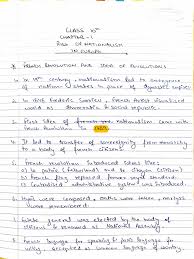 CLASS 10th
CHAPTER-1
RISE OF NATIONALISM
IN EUROPE
FRENCH REVOLUTION AND IDEA OF NATIONALISM
1. In 19th century, nationalism led to emergence
of nation states in place of dynastic empires
2. In 1848 Frederic Sorrieu, French Artist visualised
world as democratic & Social republic.
3. First idea of nationalism came with
French Revolution in 1789
4. It led to transfer of sovereignty from monarchy
to a body of French citizens
5. French revolution introduced ideas like:
a) la patrie (fatherland) and le citoyen (citizen)
b) French flag replaced former royal standard
c) Centralised administrative system was introduced
6. Hymns were composed, oaths were taken, martyrs
were commemorated
7. Estate general was elected by the body of
citizens & renamed as National Assembly
8. French language for speaking & Paris language for
writing accepted as common language of identity